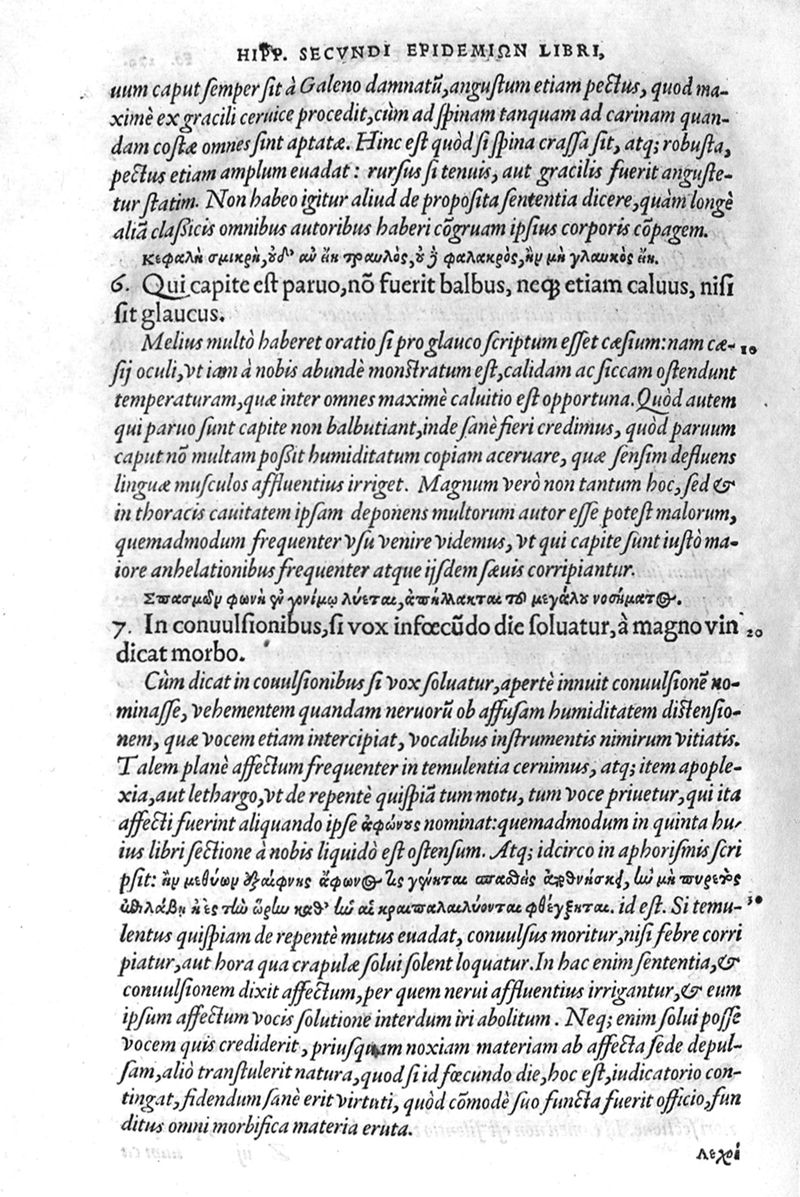 HIPP. SECVNDI EPIDEMIΩN LIBRI,
uum caput semper sit à Galeno damnatũ, angustum etiam pectus, quod ma-
ximè ex gracili ceruice procedit, cùm ad spinam tanquam ad carinam quan-
dam costæ omnes sint aptatæ. Hinc est quòd si spina crassa sit, atq; robusta,
pectus etiam amplum euadat: rursus si tenuis, aut gracilis fuerit anguste-
tur statim. Non habeo igitur aliud de proposita sententia dicere, quàm longè
aliã classicis omnibus autoribus haberi cõgruam ipsius corporis cõpagem.
Κεφαλὴ σμικρὴ, οὐδ' ἂν ἔη τραυλὸς, οὐδὲ φαλακρὸς, ἢν μὴ γλαυκὸς ἔη.
6. Qui capite est paruo, nõ fuerit balbus, neq; etiam caluus, nisi
sit glaucus.
Melius multò haberet oratio si pro glauco scriptum esset cæsium: nam cæ- 10
sij oculi, vt iam à nobis abundè monstratum est, calidam ac siccam ostendunt
temperaturam, quæ inter omnes maximè caluitio est opportuna. Quòd autem
qui paruo sunt capite non balbutiant, inde sanè fieri credimus, quòd paruum
caput nõ multam possit humiditatum copiam aceruare, quæ sensim defluens
linguæ musculos affluentius irriget. Magnum verò non tantum hoc, sed &
in thoracis cauitatem ipsam deponens multorum autor esse potest malorum,
quemadmodum frequenter vsu venire videmus, vt qui capite sunt iustò ma-
iore anhelationibus frequenter atque ijsdem sæuis corripiantur.
Σπασμῶν φωνὴ ἐν γονίμῳ λύεται, ἀπήλλακται τοῦ μεγάλου νοσήματος.
7. In conuulsionibus, si vox infœcũdo die soluatur, à magno vin 20
dicat morbo.
Cùm dicat in couulsionibus si vox soluatur, apertè innuit conuulsionẽ no-
minasse, vehementem quandam neruorũ ob affusam humiditatem distensio-
nem, quæ vocem etiam intercipiat, vocalibus instrumentis nimirum vitiatis.
Talem planè affectum frequenter in temulentia cernimus, atq; item apople-
xia, aut lethargo, vt de repentè quispiã tum motu, tum voce priuetur, qui ita
affecti fuerint aliquando ipse ἀφώνους nominat: quemadmodum in quinta hu-
ius libri sectione à nobis liquidò est ostensum. Atq; idcirco in aphorismis scri
psit: ἢν μεθύων ἐξαίφνης ἄφωνος τις γένηται σπασθεὶς ἀποθνήσκει, ἢν μὴ πυρετὸς
ἐπιλάβῃ ἢ ἐς τὴν ὥρην καθ' ἣν αἱ κραιπάλαι λύονται φθέγξηται. id est. Si temu- 30
lentus quispiam de repentè mutus euadat, conuulsus moritur, nisi febre corri
piatur, aut hora qua crapulæ solui solent loquatur. In hac enim sententia, &
conuulsionem dixit affectum, per quem nerui affluentius irrigantur, & eum
ipsum affectum vocis solutione interdum iri abolitum. Neq; enim solui posse
vocem quis crediderit, priusquam noxiam materiam ab affecta sede depul-
sam, aliò transtulerit natura, quod si id fœcundo die, hoc est, iudicatorio con-
tingat, fidendum sanè erit virtuti, quòd cõmodè suo functa fuerit officio, fun
ditus omni morbifica materia eruta.
Λεχοῖ